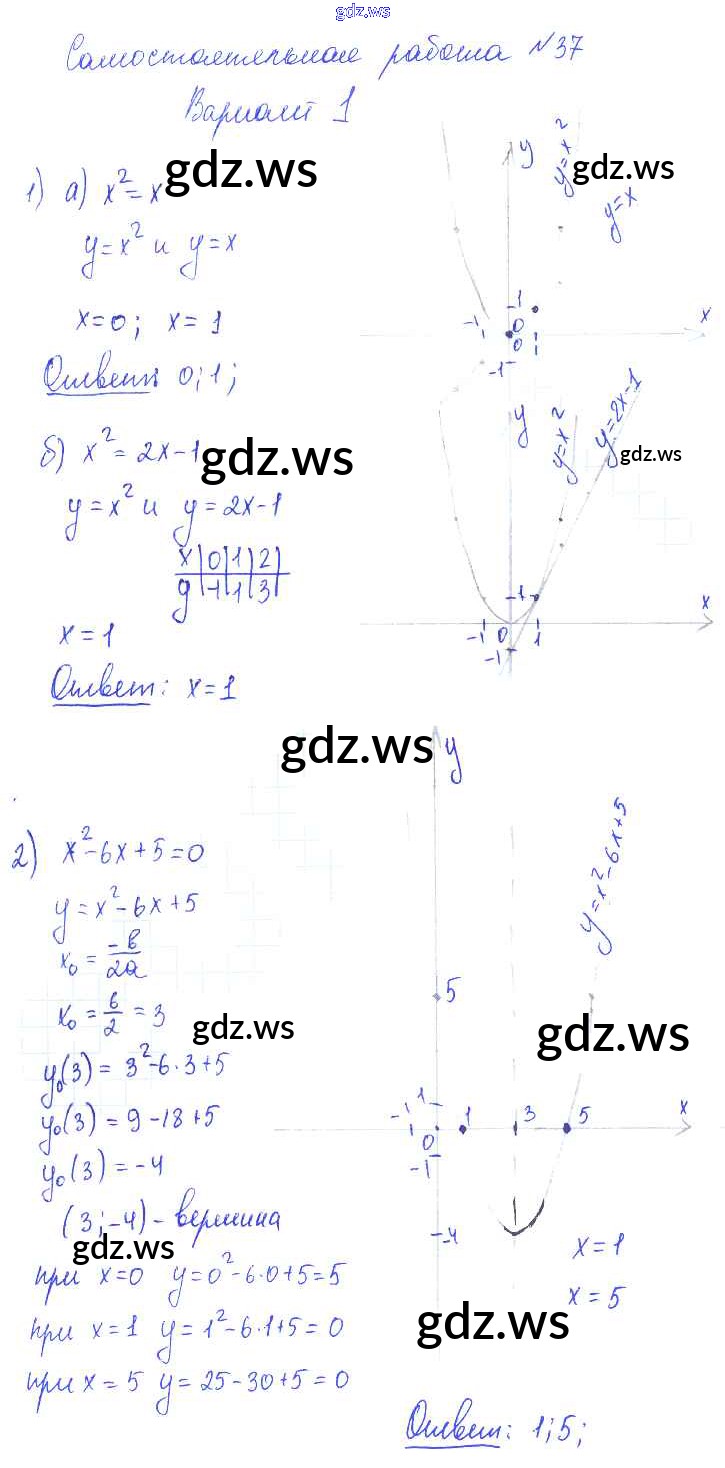 gdz.ws
Самостоятельная работа №37
Вариант 1
1) а) x²=x
gdz.ws
y=x² и y=x
x=0; x=1
Ответ: 0; 1;
y
y=x²
gdz.ws
y=x
x
-1
1
0
0
1
-1
б) x²=2x-1
gdz.ws
y=x² и y=2x-1
x|0|1|2|
y|-1|1|3|
x=1
Ответ: x=1
y
y=x²
y=2x-1
gdz.ws
x
1
-1
0
1
-1
gdz.ws
2) x²-6x+5=0
y=x²-6x+5
x₀=-b/2a
x₀=6/2=3
gdz.ws
y₀(3)=3²-6·3+5
y₀(3)=9-18+5
y₀(3)=-4
(3;-4)-вершина
gdz.ws
при x=0 y=0²-6·0+5=5
при x=1 y=1²-6·1+5=0
при x=5 y=25-30+5=0
y
y=x²-6x+5
5
gdz.ws
1
-1
0
1
3
5
x
-1
-4
x=1
x=5
gdz.ws
Ответ: 1; 5;